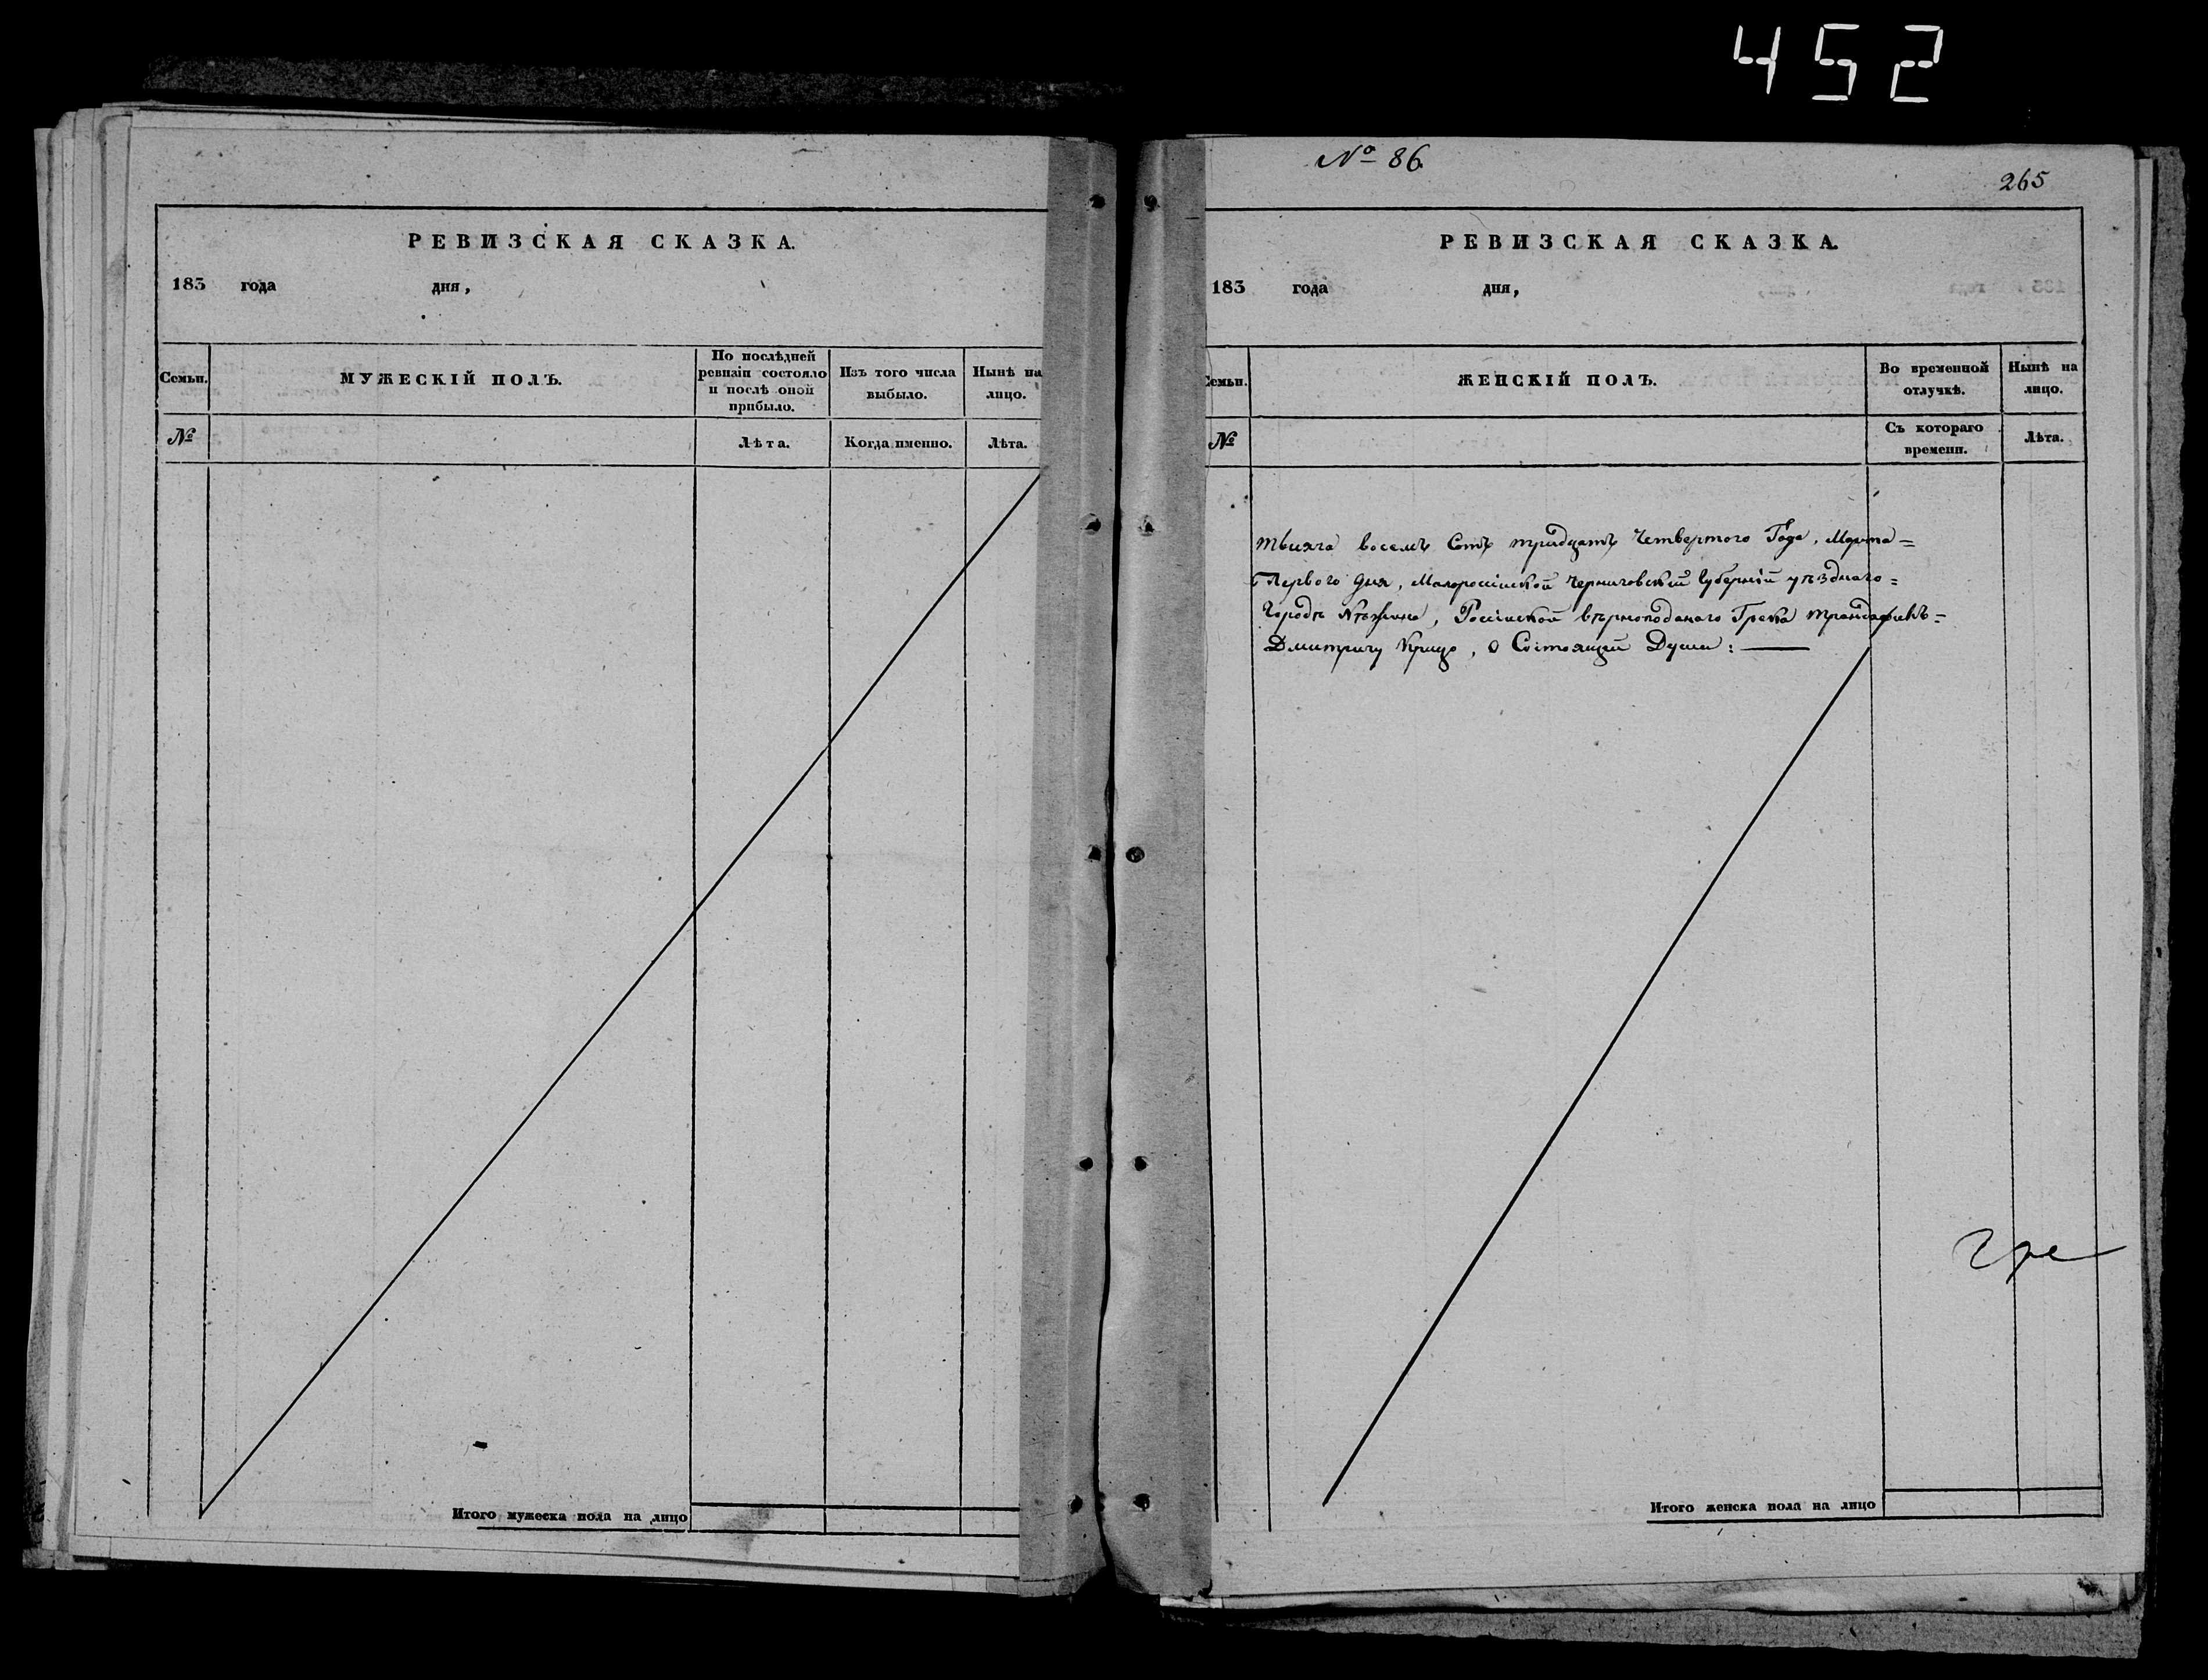 452
РЕВИЗСКАЯ СКАЗКА.
183 года дня,
Семьи.
МУЖЕСКІЙ ПОЛЪ.
По послѣдней
ревизіи состояло
и послѣ оной
прибыло.
Изъ того числа
выбыло.
Нынѣ на
лицо.
№
Лѣта.
Когда именно.
Лѣта.
Итого мужеска пола на лицо
№ 86
265
РЕВИЗСКАЯ СКАЗКА.
183 года дня,
Семьи.
ЖЕНСКІЙ ПОЛЪ.
Во временной
отлучкѣ.
Нынѣ на
лицо.
№
Съ котораго
времени.
Лѣта.
тысяча восемъ Сотъ тридцатъ Четвертого Года, Марта=
Первого дня, Малороссійской Черниговской Губерніи уѣзднаго=
Города Нѣжина, Россійской вѣрноподанаго Грека
Дмитричу Крицо, о Состоящей Души:
Итого женска пола на лицо